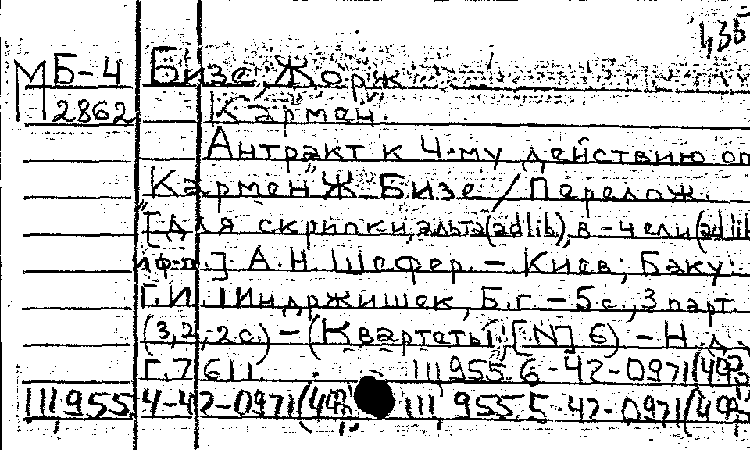 1,35
М Б-4 Бизе, Жорж
2862 Кармен.
Антракт к 4-му действию оп.
"Кармен" Ж. Бизе / Перелож.
[для скрипки, альта (ad lib), в-чели (ad lib)
и ф-п.] А. Н. Шефер. - Киев; Баку:
Г. И. Индржишек, Б.г. - 5 с., 3 парт.
(3, 2, 2 с.) - (Квартеты [N] 6) - Н.д.,
Г. 7611 Ш 955 6-42-0971(492)
Ш 955 4-42-0971(492) Ш 955 5-42-0971(492)